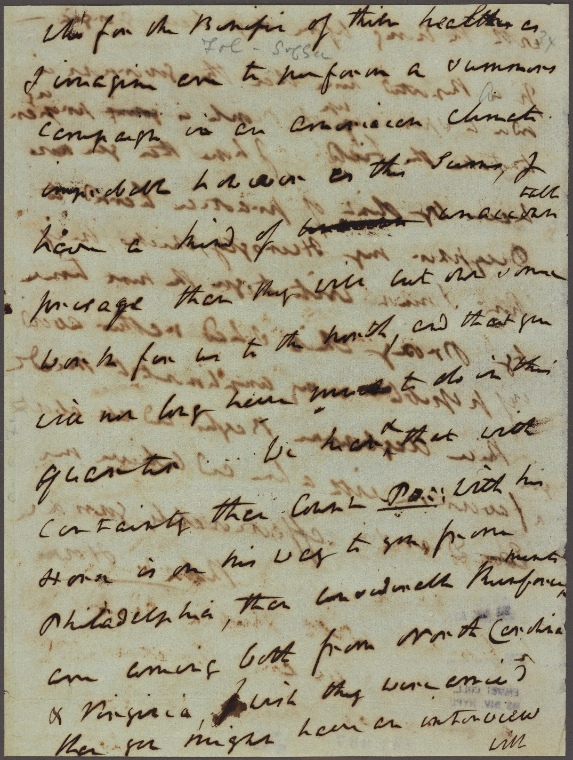 who for the Benefit of their healths as
I imagine are to perform a summers
campaign in an american climate
improbable however as this seems, I
have a kind of unaccountable
presage that they will cut out some
work for us to the north, and that you
will not long have to do in this
quarter. We hear that with
certainty that Count with his
Horse is on his way to you from
Philadelphia, that considerable Reinforcements
are coming both from North Carolina
& Virginia, I wish they were arriv'd
that you might have an interview
with